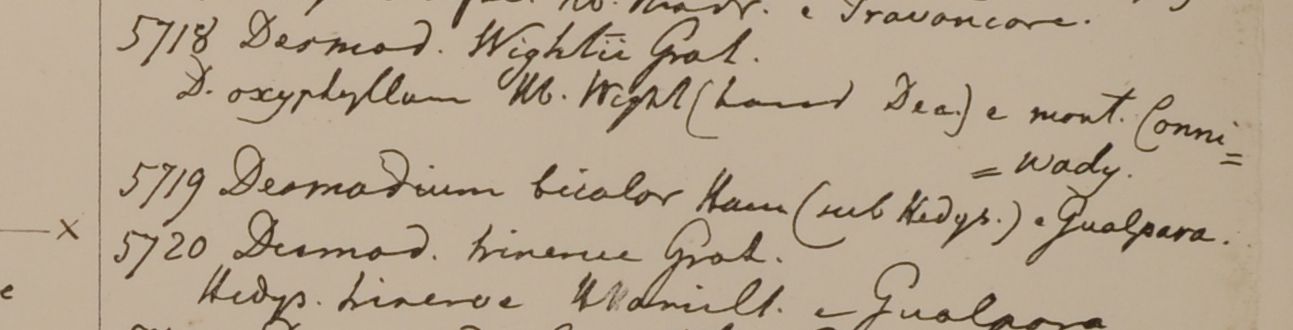 Hb. Madr. e Travancore.
5718 Desmod. Wightii Grah.
D. oxyphyllum Hb. Wight (haud Dec.) e mont. Conni=
=wady.
5719 Desmodium bicolor Ham (sub Hedys.) e Gualpara.
5720 Desmod. trinerve Grah.
Hedys. trinerve Hb Hamilt. e Gualpara